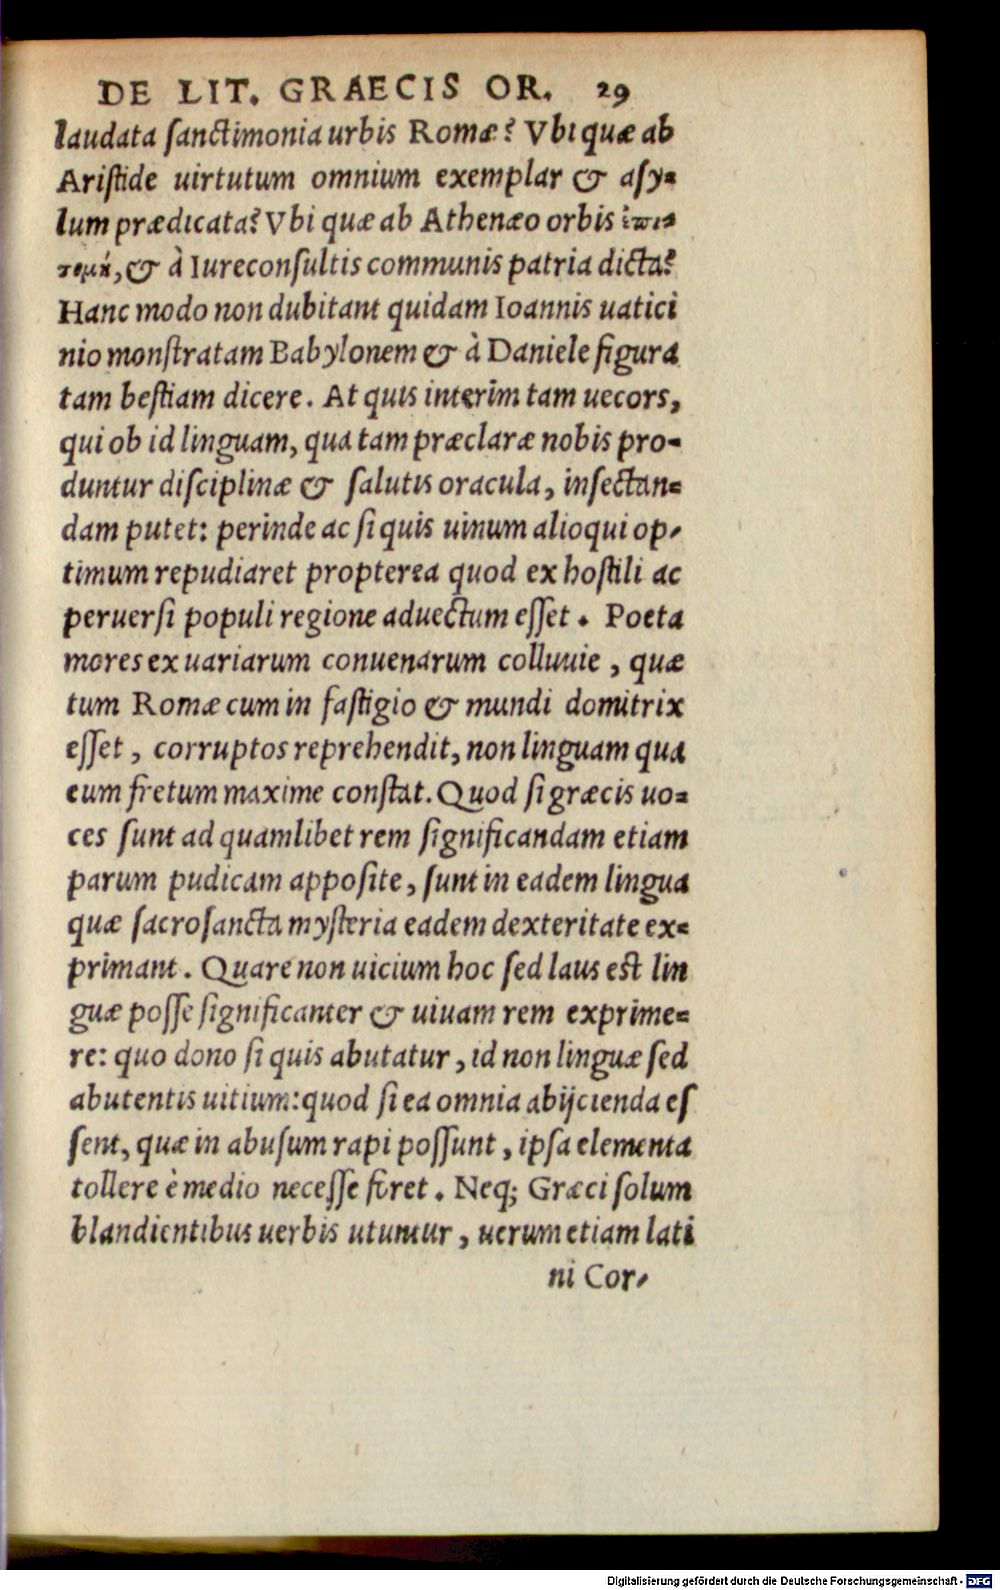 DE LIT. GRAECIS OR. 29
laudata sanctimonia urbis Romæ? Vbi quæ ab
Aristide uirtutum omnium exemplar & asy-
lum prædicata? Vbi quæ ab Athenæo orbis ἐπι-
τομὴ, & à Iureconsultis communis patria dicta?
Hanc modo non dubitant quidam Ioannis uatici
nio monstratam Babylonem & à Daniele figura
tam bestiam dicere. At quis interim tam uecors,
qui ob id linguam, qua tam præclaræ nobis pro-
duntur disciplinæ & salutis oracula, insectan-
dam putet: perinde ac si quis uinum alioqui op-
timum repudiaret propterea quod ex hostili ac
peruersi populi regione aduectum esset. Poeta
mores ex uariarum conuenarum colluuie, quæ
tum Romæ cum in fastigio & mundi domitrix
esset, corruptos reprehendit, non linguam qua
eum fretum maxime constat. Quod si græcis uo-
ces sunt ad quamlibet rem significandam etiam
parum pudicam apposite, sunt in eadem lingua
quæ sacrosancta mysteria eadem dexteritate ex-
primant. Quare non uicium hoc sed laus est lin
guæ posse significanter & uiuam rem exprime-
re: quo dono si quis abutatur, id non linguæ sed
abutentis uitium: quod si ea omnia abijcienda es
sent, quæ in abusum rapi possunt, ipsa elementa
tollere è medio necesse foret. Neq; Græci solum
blandientibus uerbis utuntur, uerum etiam lati
ni Cor-
Digitalisierung gefördert durch die Deutsche Forschungsgemeinschaft - DFG